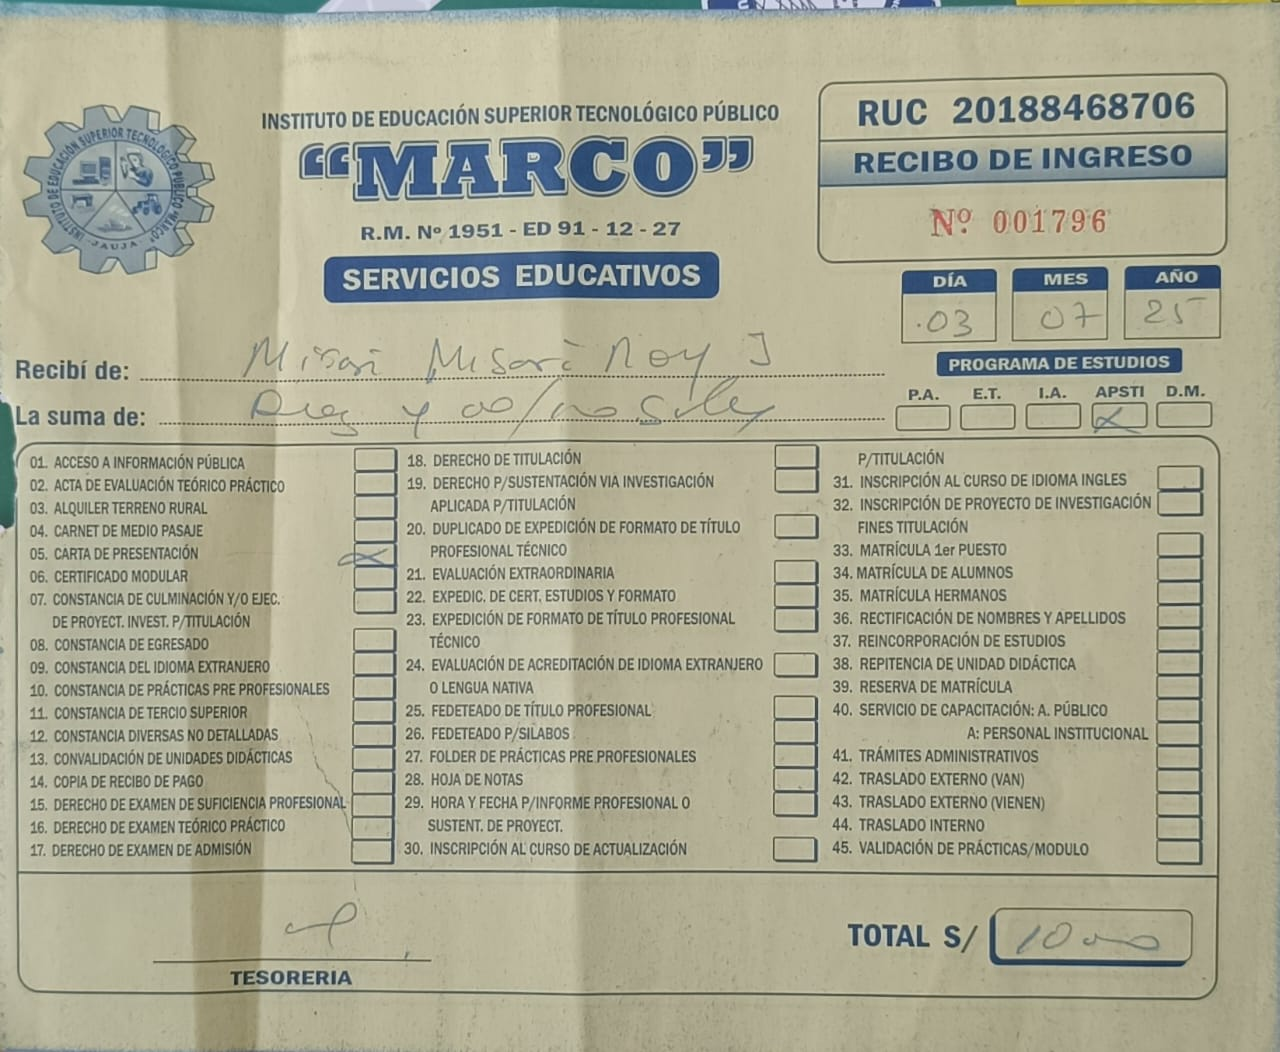 INSTITUTO DE EDUCACIÓN SUPERIOR TECNOLÓGICO PÚBLICO "MARCO"
- JAUJA -
INSTITUTO DE EDUCACIÓN SUPERIOR TECNOLÓGICO PÚBLICO
“MARCO”
R.M. Nº 1951 - ED 91 - 12 - 27
SERVICIOS EDUCATIVOS
RUC 20188468706
RECIBO DE INGRESO
Nº 001796
DÍA MES AÑO
03 07 25
Recibí de: Misari Misari Roy J
La suma de: Diez y 00/100 Soles
PROGRAMA DE ESTUDIOS
P.A. E.T. I.A. APSTI D.M.
01. ACCESO A INFORMACIÓN PÚBLICA
02. ACTA DE EVALUACIÓN TEÓRICO PRÁCTICO
03. ALQUILER TERRENO RURAL
04. CARNET DE MEDIO PASAJE
05. CARTA DE PRESENTACIÓN
06. CERTIFICADO MODULAR
07. CONSTANCIA DE CULMINACIÓN Y/O EJEC.
DE PROYECT. INVEST. P/TITULACIÓN
08. CONSTANCIA DE EGRESADO
09. CONSTANCIA DEL IDIOMA EXTRANJERO
10. CONSTANCIA DE PRÁCTICAS PRE PROFESIONALES
11. CONSTANCIA DE TERCIO SUPERIOR
12. CONSTANCIA DIVERSAS NO DETALLADAS
13. CONVALIDACIÓN DE UNIDADES DIDÁCTICAS
14. COPIA DE RECIBO DE PAGO
15. DERECHO DE EXAMEN DE SUFICIENCIA PROFESIONAL
16. DERECHO DE EXAMEN TEÓRICO PRÁCTICO
17. DERECHO DE EXAMEN DE ADMISIÓN
18. DERECHO DE TITULACIÓN
19. DERECHO P/SUSTENTACIÓN VIA INVESTIGACIÓN
APLICADA P/TITULACIÓN
20. DUPLICADO DE EXPEDICIÓN DE FORMATO DE TÍTULO
PROFESIONAL TÉCNICO
21. EVALUACIÓN EXTRAORDINARIA
22. EXPEDIC. DE CERT, ESTUDIOS Y FORMATO
23. EXPEDICIÓN DE FORMATO DE TÍTULO PROFESIONAL
TÉCNICO
24. EVALUACIÓN DE ACREDITACIÓN DE IDIOMA EXTRANJERO
O LENGUA NATIVA
25. FEDETEADO DE TÍTULO PROFESIONAL
26. FEDETEADO P/SILABOS
27. FOLDER DE PRÁCTICAS PRE PROFESIONALES
28. HOJA DE NOTAS
29. HORA Y FECHA P/INFORME PROFESIONAL O
SUSTENT. DE PROYECT.
30. INSCRIPCIÓN AL CURSO DE ACTUALIZACIÓN
P/TITULACIÓN
31. INSCRIPCIÓN AL CURSO DE IDIOMA INGLES
32. INSCRIPCIÓN DE PROYECTO DE INVESTIGACIÓN
FINES TITULACIÓN
33. MATRÍCULA 1er PUESTO
34. MATRÍCULA DE ALUMNOS
35. MATRÍCULA HERMANOS
36. RECTIFICACIÓN DE NOMBRES Y APELLIDOS
37. REINCORPORACIÓN DE ESTUDIOS
38. REPITENCIA DE UNIDAD DIDÁCTICA
39. RESERVA DE MATRÍCULA
40. SERVICIO DE CAPACITACIÓN: A. PÚBLICO
A: PERSONAL INSTITUCIONAL
41. TRÁMITES ADMINISTRATIVOS
42. TRASLADO EXTERNO (VAN)
43. TRASLADO EXTERNO (VIENEN)
44. TRASLADO INTERNO
45. VALIDACIÓN DE PRÁCTICAS/MODULO
TESORERIA
TOTAL S/ 10 00